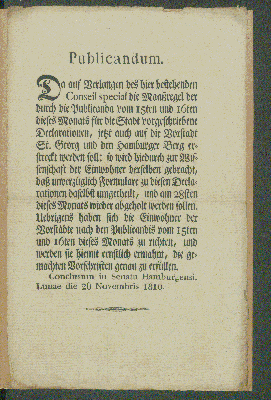 Publicandum.
Da auf Verlangen des hier bestehenden
Conseil special die Maaßregel der
durch die Publicanda vom 15ten und 16ten
dieses Monats für die Stadt vorgeschriebene
Declarationen, jetzt auch auf die Vorstadt
St. Georg und den Hamburger Berg er-
streckt werden soll: so wird hiedurch zur Wis-
senschaft der Einwohner derselben gebracht,
daß unverzüglich Formulare zu diesen Decla-
rationen daselbst umgetheilt, und am
dieses Monats wieder abgeholt werden sollen.
Uebrigens haben sich die Einwohner der
Vorstädte nach den Publicandis vom 15ten
und 16ten dieses Monats zu richten, und
werden sie hiemit ernstlich ermahnt, die ge-
machten Vorschriften genau zu erfüllen.
Conclusum in Senatu Hamburgensi.
Lunae die 26 Novembris 1810.